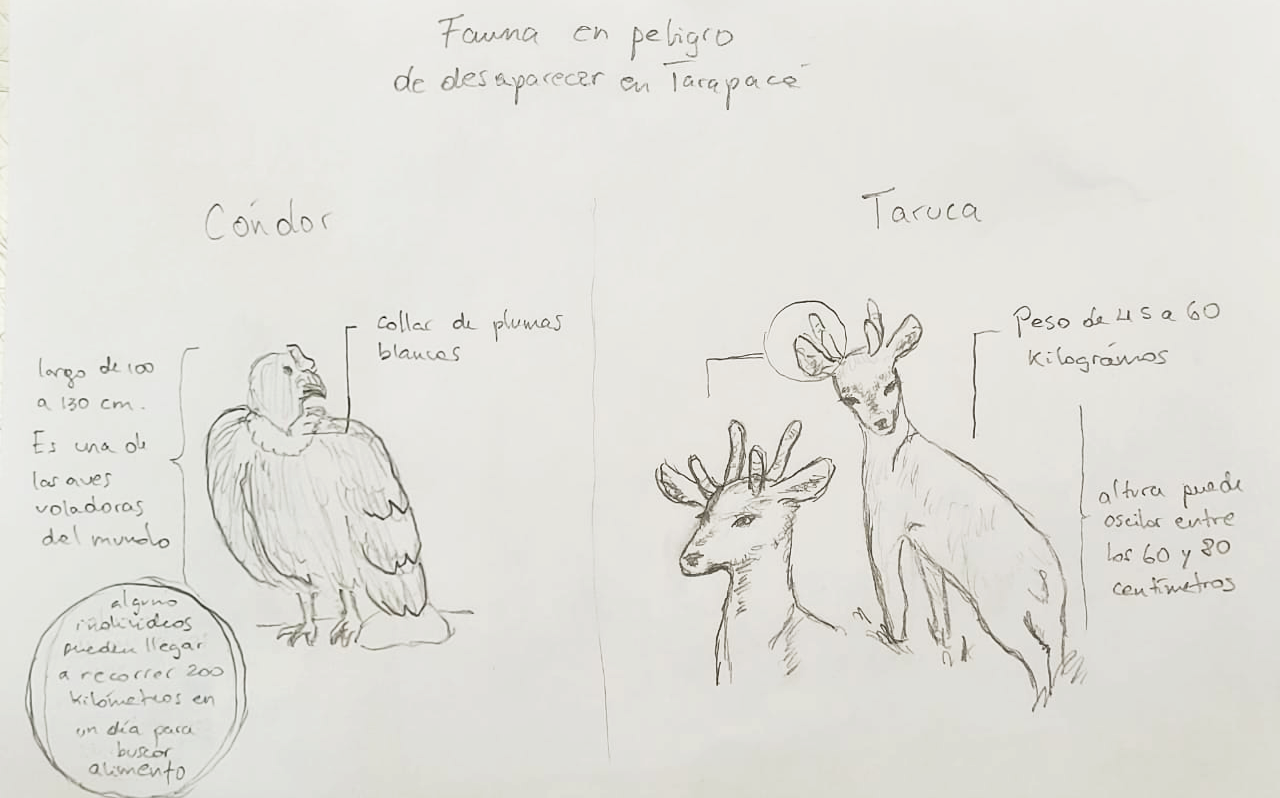 Fauna en peligro
de desaparecer en Tarapacá
Cóndor
collar de plumas
blancas
largo de 100
a 130 cm.
Es una de
las aves
voladoras
del mundo
alguno
individeos
pueden llegar
a recorrer 200
kilómetros en
un día para
buscar
alimento
Taruca
Peso de 45 a 60
kilográmos
altura puede
oscilar entre
los 60 y 80
centímetros